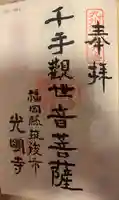 奉拜
千手觀世音菩薩
福岡縣筑後市
光明寺